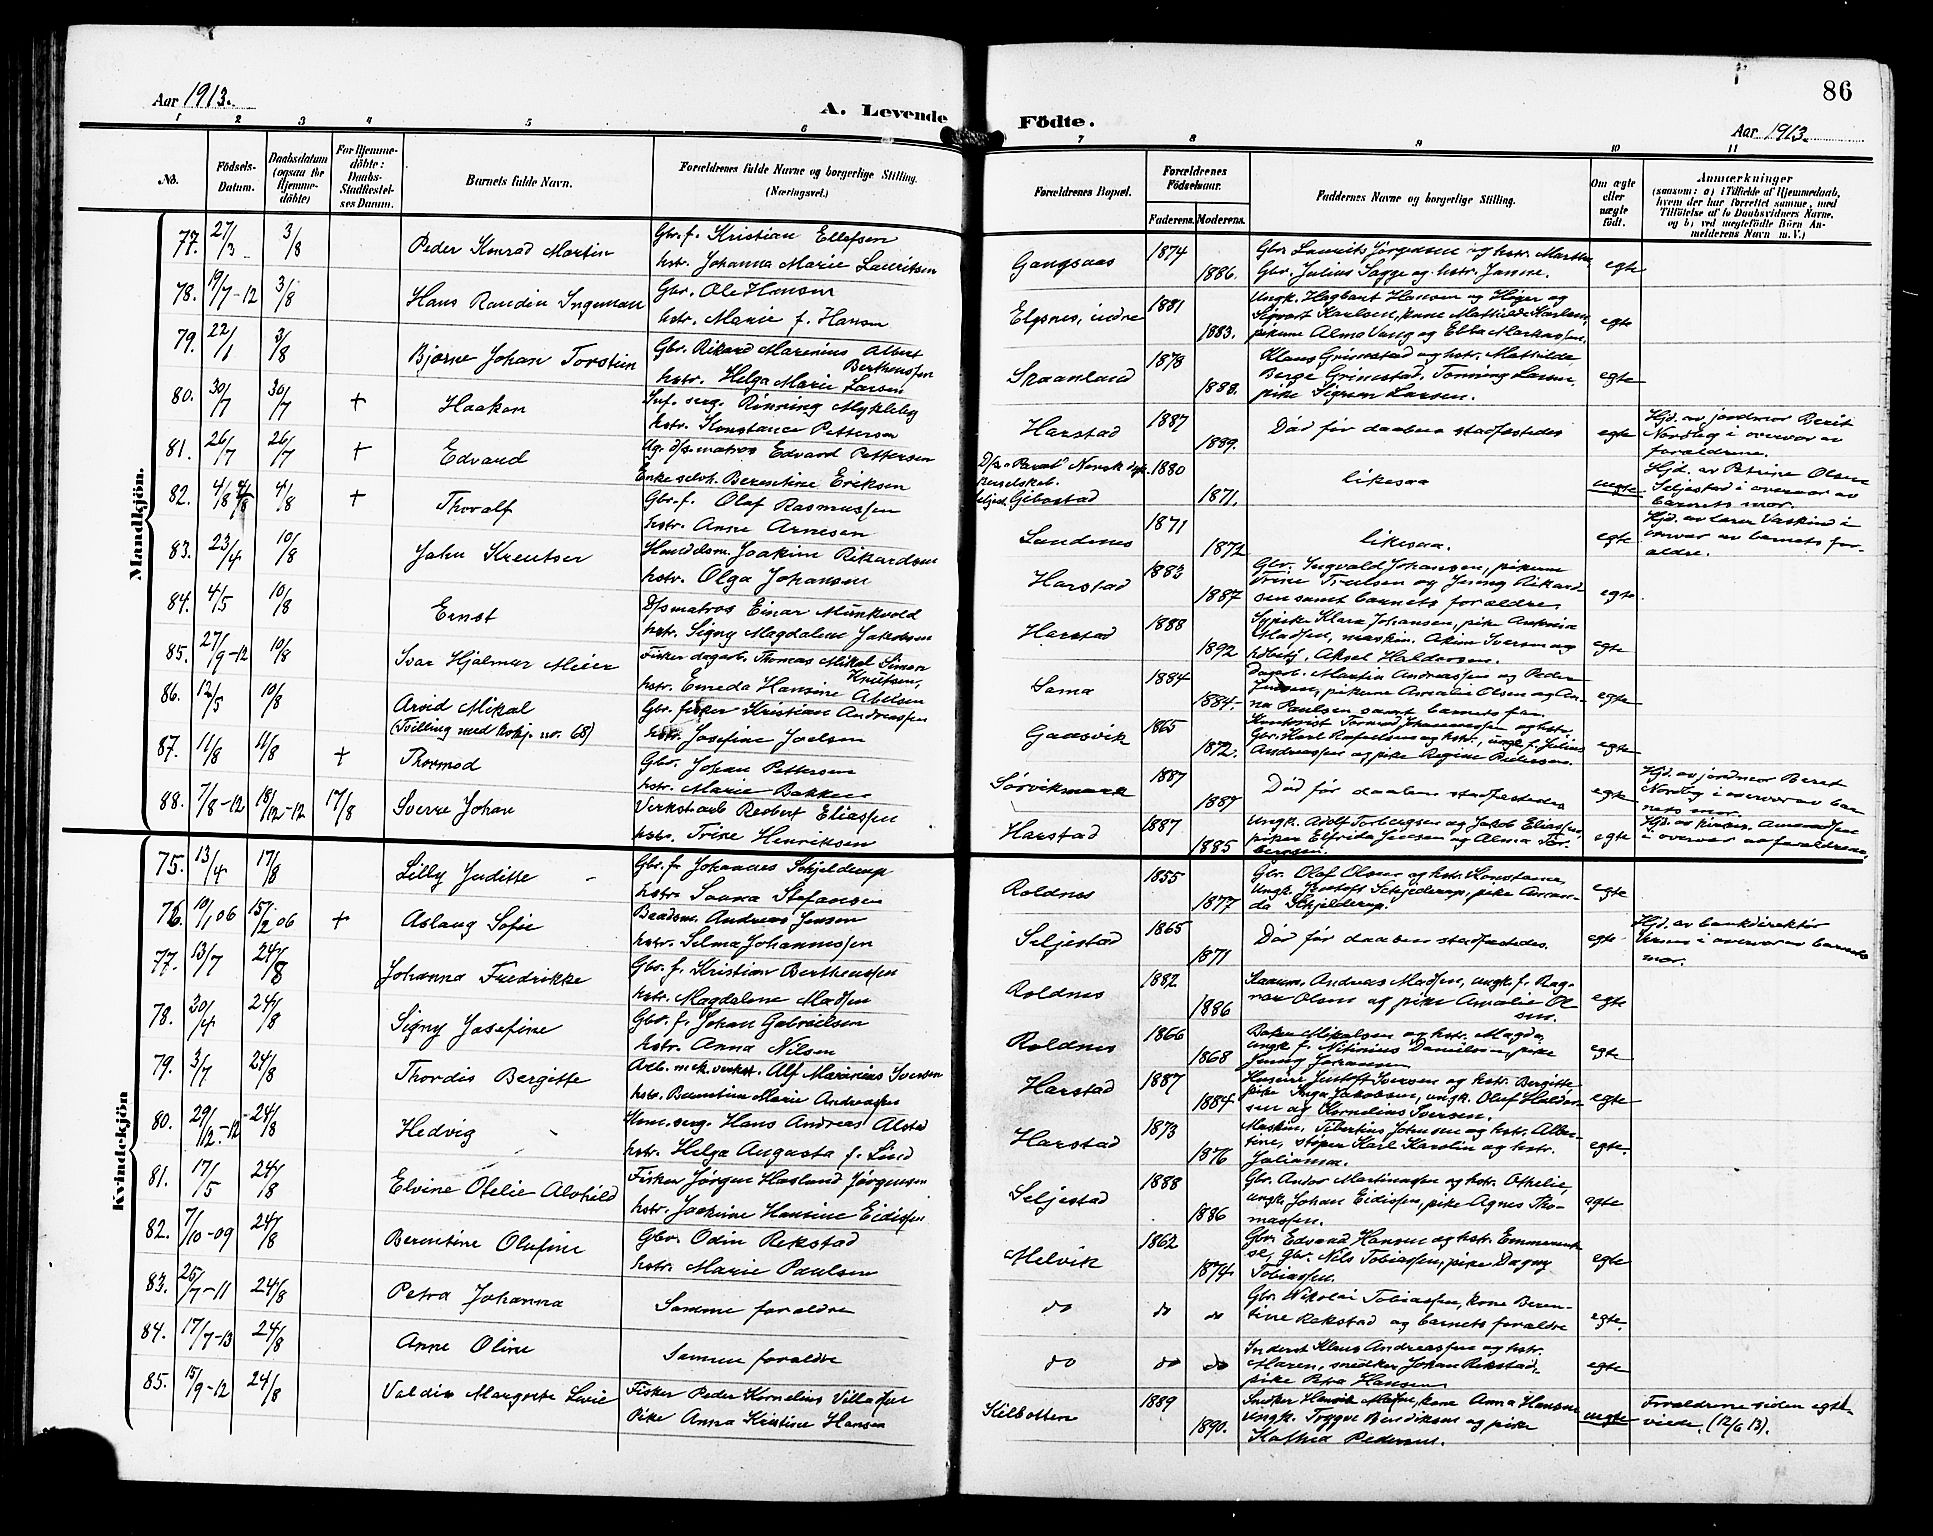 Aar 1913.
A. Levende
1 2 3 4 5 6
No.
Födsels-Datum.
Daabsdatum (ogsaa for Hjemme-döbte)
For Hjemme-döbte: Daabs-Stadfæstel-ses Datum.
Barnets fulde Navn.
Forældrenes fulde Navne og borgerlige Stilling. (Næringsvei.)
Mandkjön.
77. 27/3 3/8 Peder Konrad Martin Gbr. f. Kristian Ellefsen
hstr. Johanna Marie Lauritsen
78. 19/7-12 3/8 Hans Randin Ingeman Gbr. Ole Hansen
hstr. Marie f. Hansen
79. 22/1 3/8 Bjarne Johan Torstein Gbr. Rikard Marenius Albert Bertheussen
hstr. Helga Marie Larsen
80. 30/7 30/7 + Haakon Inf. serg. Rönning Myklebg
hstr. Konstance Pettersen
81. 26/7 26/7 + Edvard Ug. d/s. matros Edvard Pettersen
Enke selvh. Berentine Eriksen
82. 4/8 4/8 4/8 + Thoralf Gbr. f. Olaf Rasmussen
hstr. Anne Arnesen
83. 23/4 10/8 John Kreutser Handelsm. Joakim Rikardsen
hstr. Olga Johansen
84. 4/5 10/8 Ernst D/smatros Einar Munkvold
hstr. Signy Magdalene Jakobsen
85. 27/9-12 10/8 Ivar Hjalmar Meier Fisker dagarb. Thomas Mikal Simon Knutsen,
hstr. Emeda Hansine Abelsen
86. 12/5 10/8 Arvid Mikal Gbr. fisker Kristian Andreassen
(Tvilling med kvkj. no. 68) hstr. Josefine Joelsen
87. 11/8 11/8 + Thormod Gbr. Johan Pettersen
hstr. Marie Bakken
88. 7/8-12 18/12-12 17/8 Sverre Johan Verkstarb Reobert Eliassen
hstr. Trine Henriksen
Kvindekjön
75. 13/4 17/8 Lilly Juditte Gbr. f. Johannes Schjelderup
hstr. Saava Stefansen
76. 10/1 06 15/2 06 + Aslaug Sofie Baadsm. Andreas Jensen
hstr. Selma Johannessen
77. 13/7 24/8 Johanna Fredrikke Gbr. f. Kristian Bertheussen
hstr. Magdalene Madsen
78. 30/4 24/8 Signy Josefine Gbr. f. Johan Gabrielsen
hstr. Anna Nilsen
79. 3/7 24/8 Thordis Bergitte Arb. mek. verkst. Alf Marinius Iversen
hstr. Berentine Marie Andreassen
80. 29/12-12 24/8 Hedvig Kom. serg. Hans Andreas Alstad
hstr. Helga Augusta f. Lind
81. 17/5 24/8 Elvine Otelie Alvhild Fisker Jørgen Hasland Jørgensen
hstr. Joakine Hansine Eidissen
82. 7/10-09 24/8 Berentine Olufine Gbr. Odin Rekstad
hstr. Marie Paulsen
83. 26/7-11 24/8 Petra Johanna Samme foraldre
84. 17/7-13 24/8 Anne Oline Samme foraldre
85. 15/9-12 24/8 Valdis Margrete Lovie Fisker Peder Kornelius Villassen
Pike Anna Kristine Hansen
86
Födte.
Aar 1913.
7 8 9 10 11
Forældrenes Bopæl.
Forældrenes Födselsaar.
Faderens. Moderens.
Faddernes Navne og borgerlige Stilling.
Om ægte eller uægte födt.
Anmærkninger
(saasom: a) i Tilfælde af Hjemmedaab, hvem der har forrettet samme, med Tilföielse af to Daabsvidners Navne, og b) ved uægtefödte Börn Anmelderens Navn m.V.)
Gangsaas 1874 1886. Gbr. Laurits Jørgensen og hstr. Marthe,
Gbr. Julius Sagge og hstr. Janna. egte
Elgsnes, indre 1881 1883. Ungk. Hagbart Hansen og Høier og
Sigvart Karlsen, kone Mathilde Karlsen,
pikerne Alma Vang og Ebba Markussen. egte
Sraanland 1878 1888. Klaus Grimstad og hstr. Mathilde,
Berge Grimstad, Tønning Larsen,
pike Sigrun Larsen. egte
Harstad 1887 1889. Död før daaben stadfæstedes egte Hjd. av jordmor Berit
Nordbog i overvær av
foraldrene.
D/s. "Paral" Norsk dpsk. kulselskab. seljed. Gibostad 1880 1871. likesaa uegte Hjd. av Petrine Olsen
Seljestad i overvær av
barnets mor.
Sandenes 1871 1872 likesaa. egte Hjd. av lærer Vaskind i
overvær av barnets for-
aldre.
Harstad 1883 1887 Gbr. Ingvald Johansen, pikerne
Trine Truelsen og Jenny Rikard-
sen samt barnets foraldre egte
Harstad 1888 1892 Sypike Klara Johansen, pike Antonia
Madsen, maskin. Akim Iversen og
kobetj. Aksel Haldorsen. egte
Sama 1884 1884 Dagarb. Martin Andreassen og Peder
Jensen, pikerne Amalie Olsen og An-
na Paulsen samt barnets far. egte
Gaasvik 1865 1872. Konstrist Tormod Johannessen og hstr.
Gbr. Karl Rafaelsen og hstr., ungk. f. Julius
Andreassen og pike Regine Pedersen. egte
Sørvikmark 1887 1887 Död før daaben stadfæstedes egte Hjd. av jordmor Beret
Nordbog i overvær av bar-
nets mor.
Harstad 1887 1885 Ungk. Adolf Torbergsen og Jakob Eliassen,
piker Elfrida Jensen og Alma Tor-
bergsen. egte Hjd. av kirkes. Amundsen
i overvær av foraldrene.
Roldnes 1855 1877 Gbr. Olaf Olsen og hstr. Konstanse,
Ungk. Kristoft Schjelderup, pike Aman-
da Schjelderup. egte
Seljestad 1865 1871 Död før daaben stadfæstedes. egte Hjd. av bankdirektør
Irens i overvær av barnets
mor.
Roldnes 1882 1886 Kaarm. Andreas Madsen, ungk. f. Rag-
nar Olsen og pike Amalie Ol-
sen. egte
Roldnes 1866 1868 Baker Mikalsen og hstr. Magda,
ungk. f. Nitinius Danielsen, pike
Jenny Johansen egte
Harstad 1887 1884 Huseier Justoft Iversen og hstr. Bergitte
pike Inga Jakobsen, ungk. Oluf Haldor-
sen og Kornelius Iversen. egte
Harstad 1873 1876 Maskin. Tibertius Johnsen og hstr. Alber-
tine, støper Karl Karolin og hstr.
Julianna. egte.
Seljestad 1888 1886 Gbr. Andor Martinussen og hstr. Othelie,
ungk. Johan Eidissen, pike Agnes Tho-
massen. egte
Melvik 1862 1874. Gbr. Edvard Hansen og hstr. Emmerent-
se, gbr. Nils Tobiassen, pike Dagny
Tobiassen. egte
do do do Gbr. Nikolai Tobiassen, kone Beren-
tine Rekstad og barnets foraldre egte.
do do do Inderst Klaus Andreassen og hstr.
Maren, snedker Johan Rekstad,
pike Petra Hansen egte
Kilbotten 1889 1890. Snedker Henrik Madsen, kone Anna Hansen
Ungk. Trygve Bendiksen og pike
Kathed Pedersen. uegte Foraldrene siden egte-
viede. (12/6 13).